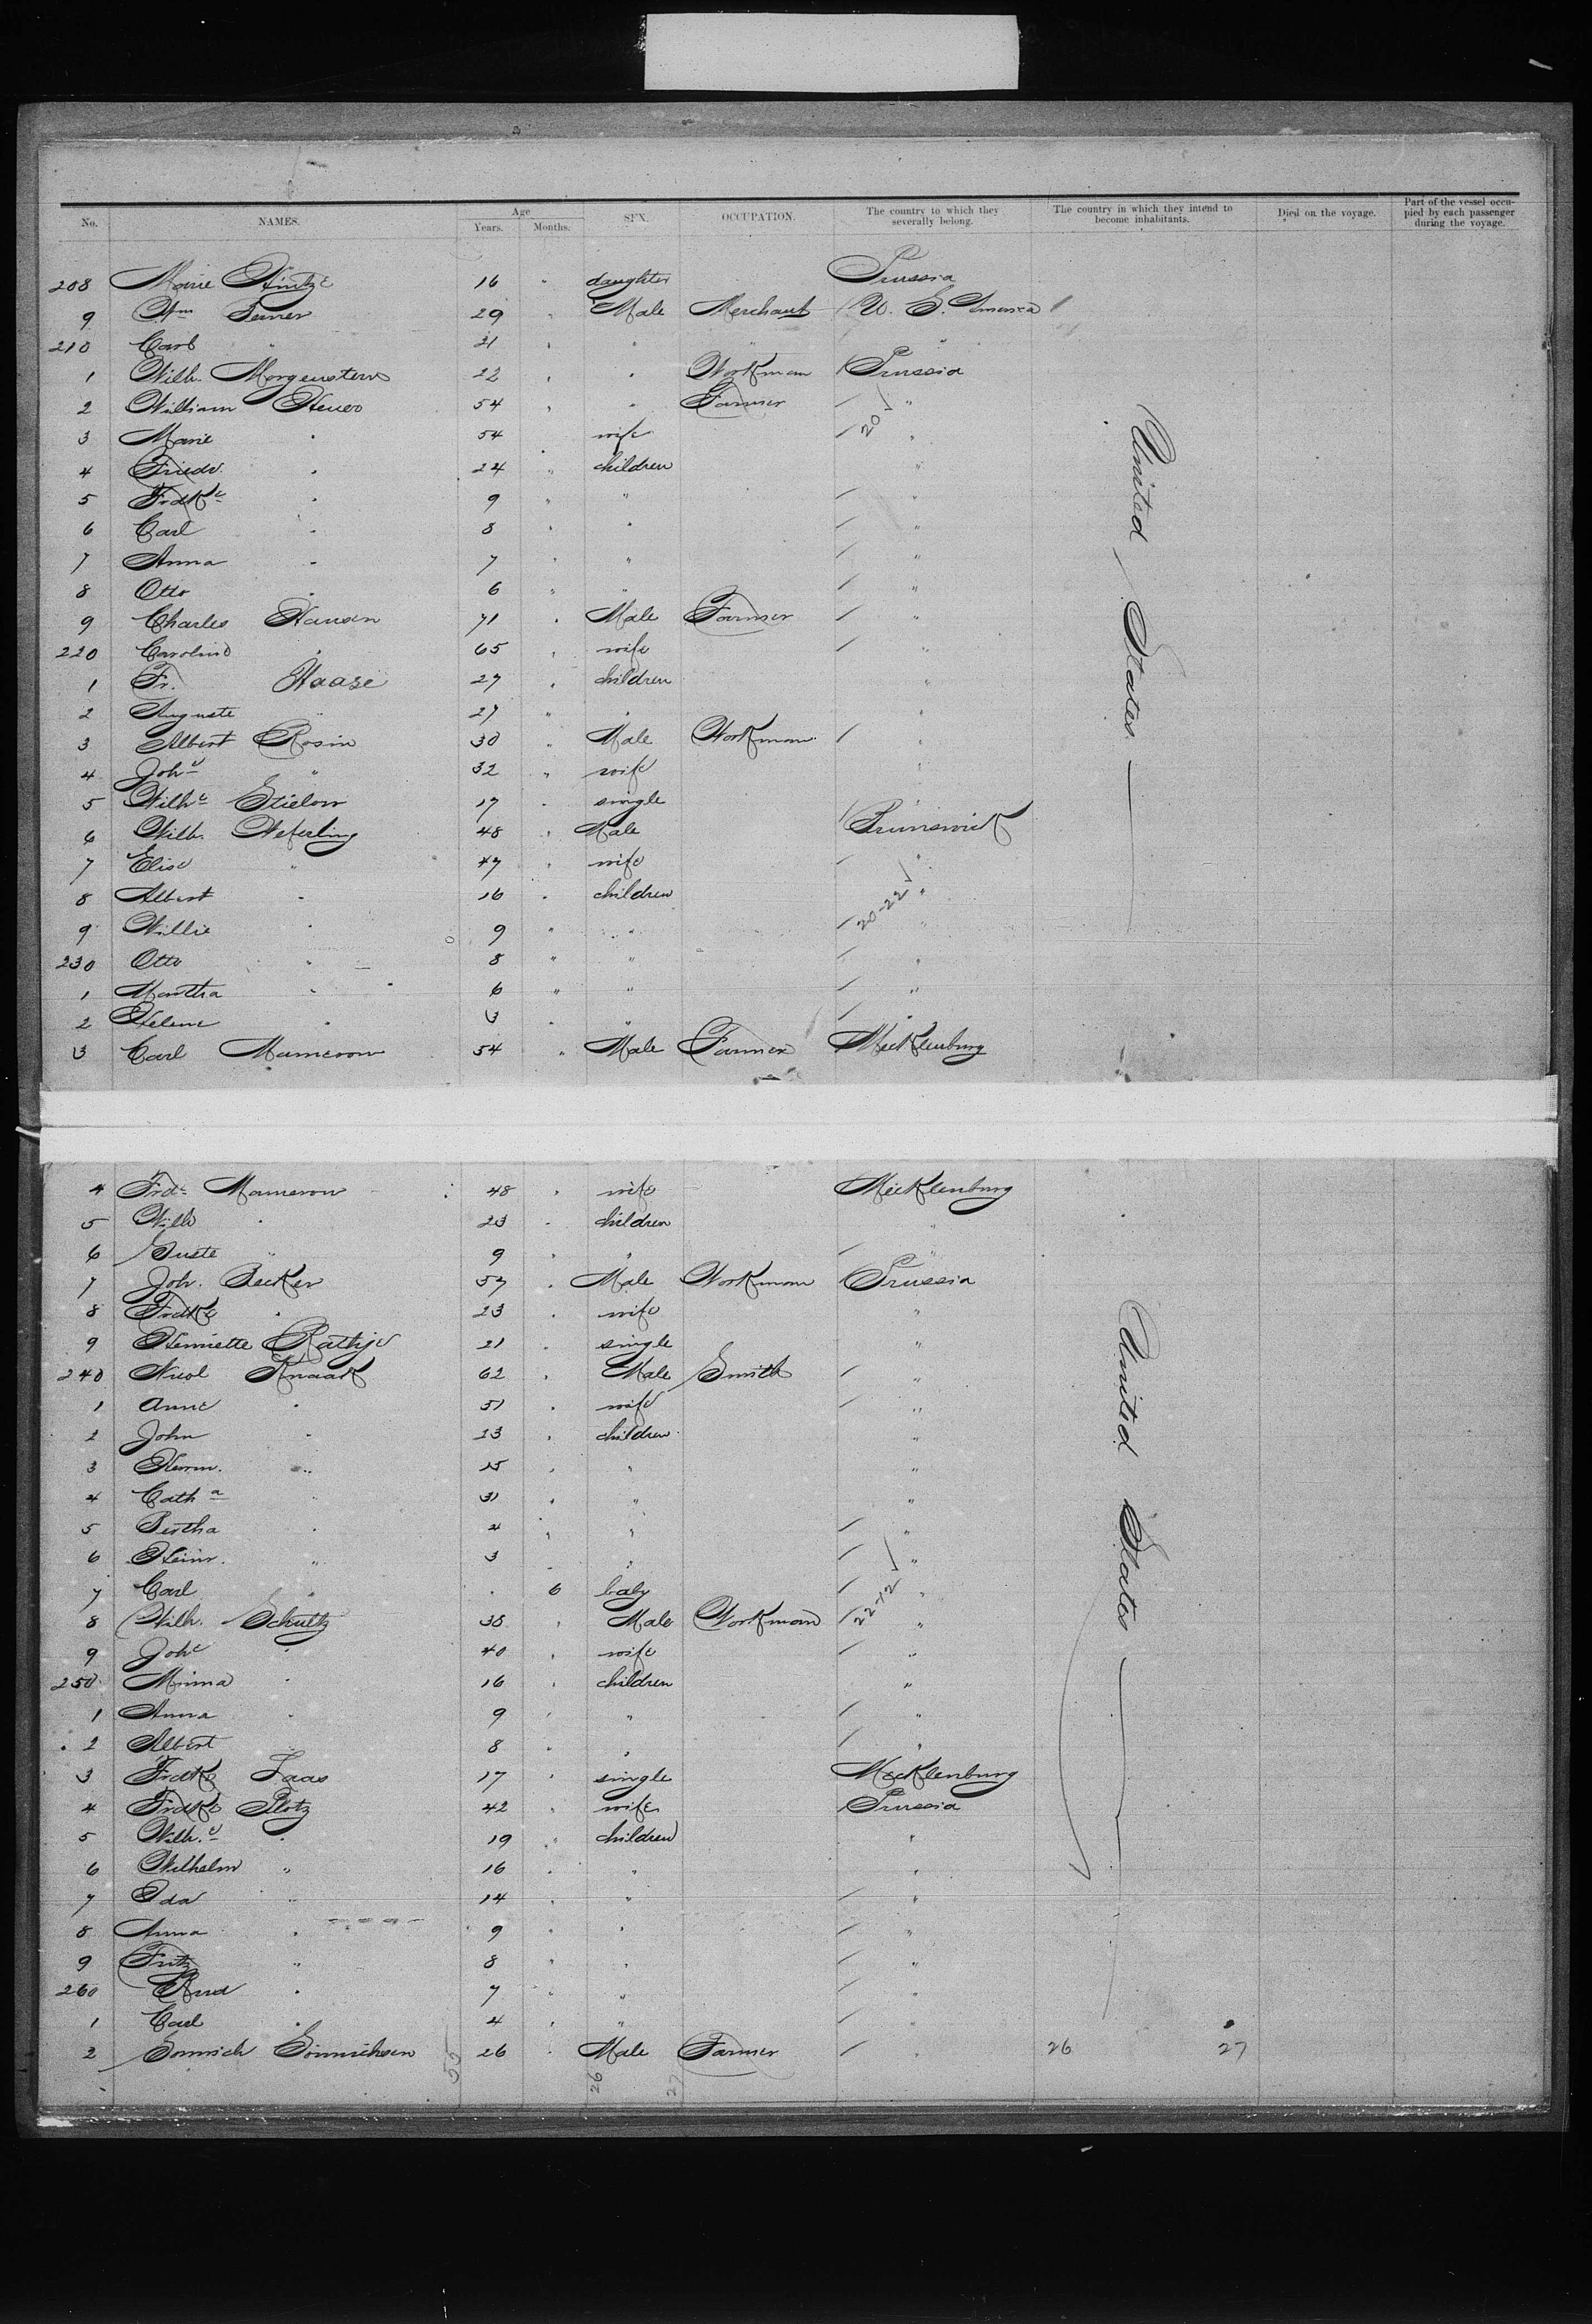 No. NAMES. Age Years. Months. SEX. OCCUPATION. The country to which they severally belong. The country in which they intend to become inhabitants. Died on the voyage. Part of the vessel occupied by each passenger during the voyage.
208 Marie Hintze 16 " daughter Prussia
9 Wm 29 " Male Merchant U. S. America
210 Carl " 21 " " " "
1 Wilh. Morgenstern 22 " " Workman Prussia
2 William Heuer 54 " " Farmer 20 "
3 Marie " 54 " wife "
4 Friedr. " 24 " children "
5 Frdke " 9 " " "
6 Carl " 8 " " "
7 Anna " 7 " " "
8 Otto " 6 " " "
9 Charles Hansen 71 " Male Farmer "
220 Caroline " 65 " wife "
1 Fr. Haase 27 " children "
2 Auguste " 27 " " "
3 Albert Rosin 30 " Male Workman "
4 Johe " 32 " wife "
5 Wilhe Stielow 17 " single "
6 Wilh. Weferling 48 " Male Brunswick
7 Elise " 47 " wife "
8 Albert " 16 " children 20-22 "
9 Willie " 9 " " "
230 Otto " 8 " " "
1 Martha " 6 " " "
2 Helene " 3 " " "
3 Carl Mamerow 54 " Male Farmer Mecklenburg
United States
4 Frde Mamerow 48 " wife Mecklenburg
5 Wilh " 23 " children "
6 Guste " 9 " " "
7 Joh. Becker 57 " Male Workman Prussia
8 Frdke " 23 " wife "
9 Henriette Rathje 21 " single "
240 Nicol Knaak 62 " Male Smith "
1 Anne " 51 " wife "
2 John " 23 " children "
3 Herm. " 15 " " "
4 Catha " 31 " " "
5 Bertha " 4 " " "
6 Heinr. " 3 " " "
7 Carl " " 6 baby "
8 Wilh. Schultz 38 " Male Workman 22-12 "
9 Johe " 40 " wife "
250 Minna " 16 " children "
1 Anna " 9 " " "
2 Albert " 8 " " "
3 Frdke 17 " single Mecklenburg
4 Frdke Plotz 42 " wife Prussia
5 Wilh.e " 19 " children "
6 Wilhelm " 16 " " "
7 Ida " 14 " " "
8 Anna " 9 " " "
9 Fritz " 8 " " "
260 " 7 " " "
1 Carl " 4 " " "
2 Sönnich Sönnichsen 26 " Male Farmer " 26 27
United States
55 26 27